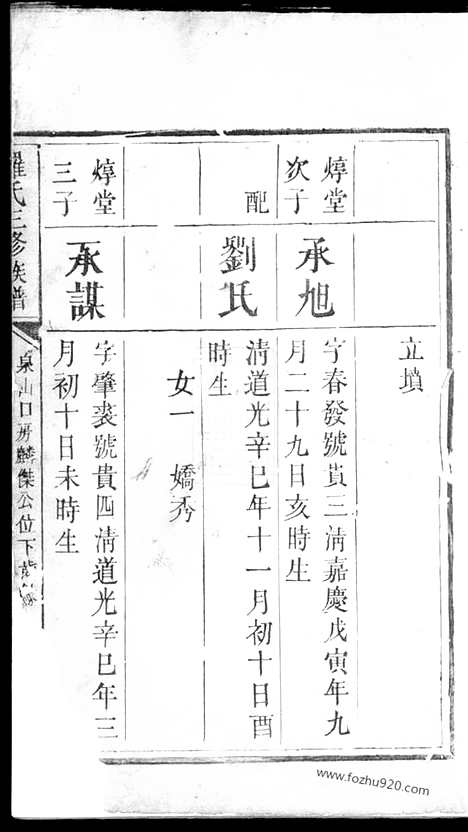 立墳
焞堂次子
承旭
字春發號貴三清嘉慶戊寅年九
月二十九日亥時生
配
劉氏
清道光辛巳年十一月初十日酉
時生
女一 嬌秀
焞堂三子
承謀
字肇裘號貴四清道光辛巳年三
月初十日未時生
羅氏三修族譜
泉山口房麟傑公位下
www.fozhu920.com